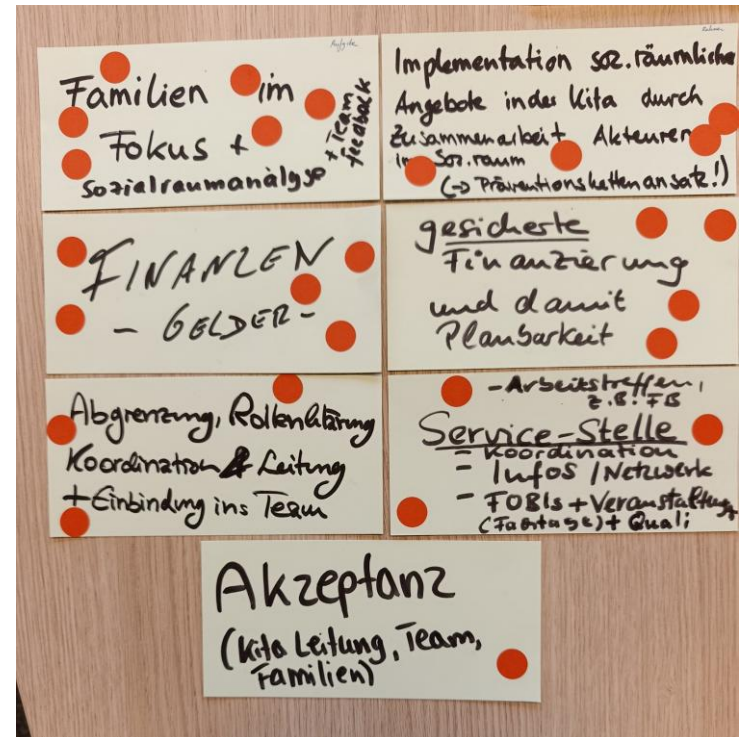 Aufgabe
Familien im
Fokus +
Sozialraumanalyse
+ Team
feedback
Rahmen
Implementation soz. räumlicher
Angebote in der Kita durch
Zusammenarbeit Akteuren
im Soz.raum
(-> Präventionskettenansatz!)
FINANZEN
- GELDER -
gesicherte
Finanzierung
und damit
Planbarkeit
Abgrenzung, Rollenklärung
Koordination & Leitung
+ Einbindung ins Team
- Arbeitstreffen,
z.B. FB
Service-Stelle
- Koordination
- Infos / Netzwerk
- FOBIs + Veranstaltung
(Fachtage) + Quali
Akzeptanz
(Kita Leitung, Team,
Familien)